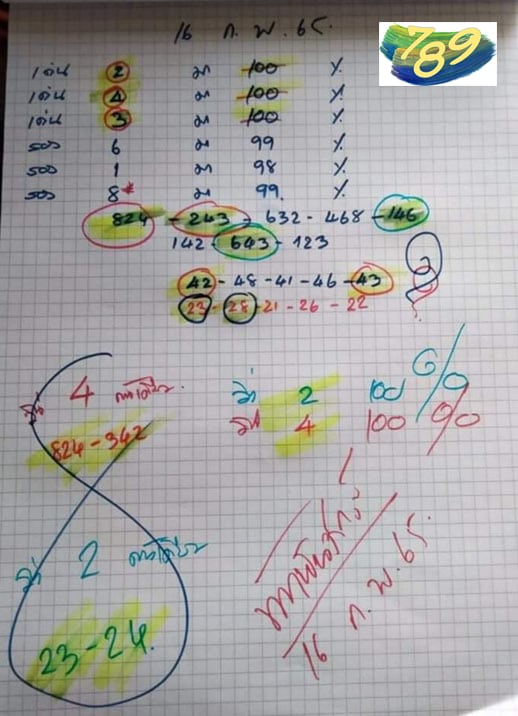 16 ก.พ. 65.
789
เด่น 2 มา 100 %
เด่น 4 มา 100 %
เด่น 3 มา 100 %
รอง 6 มา 99 %
รอง 1 มา 98 %
รอง 8* มา 99 %
824 - 243 - 632 - 468 - 146
142 - 643 - 123
42 - 48 - 41 - 46 - 43
23 - 28 - 21 - 26 - 22
4
824 - 342
2 100 %
4 100 %
2
23 - 24.
16 ก.พ. 65.